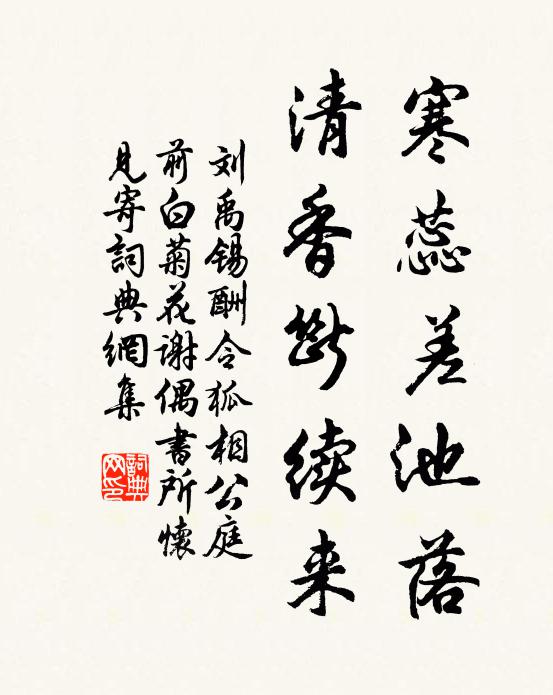 寒蕊差池落
清香断续来
刘禹锡酬令狐相公庭
前白菊花谢偶书所懷
見寄詞典網集
詞典
网印